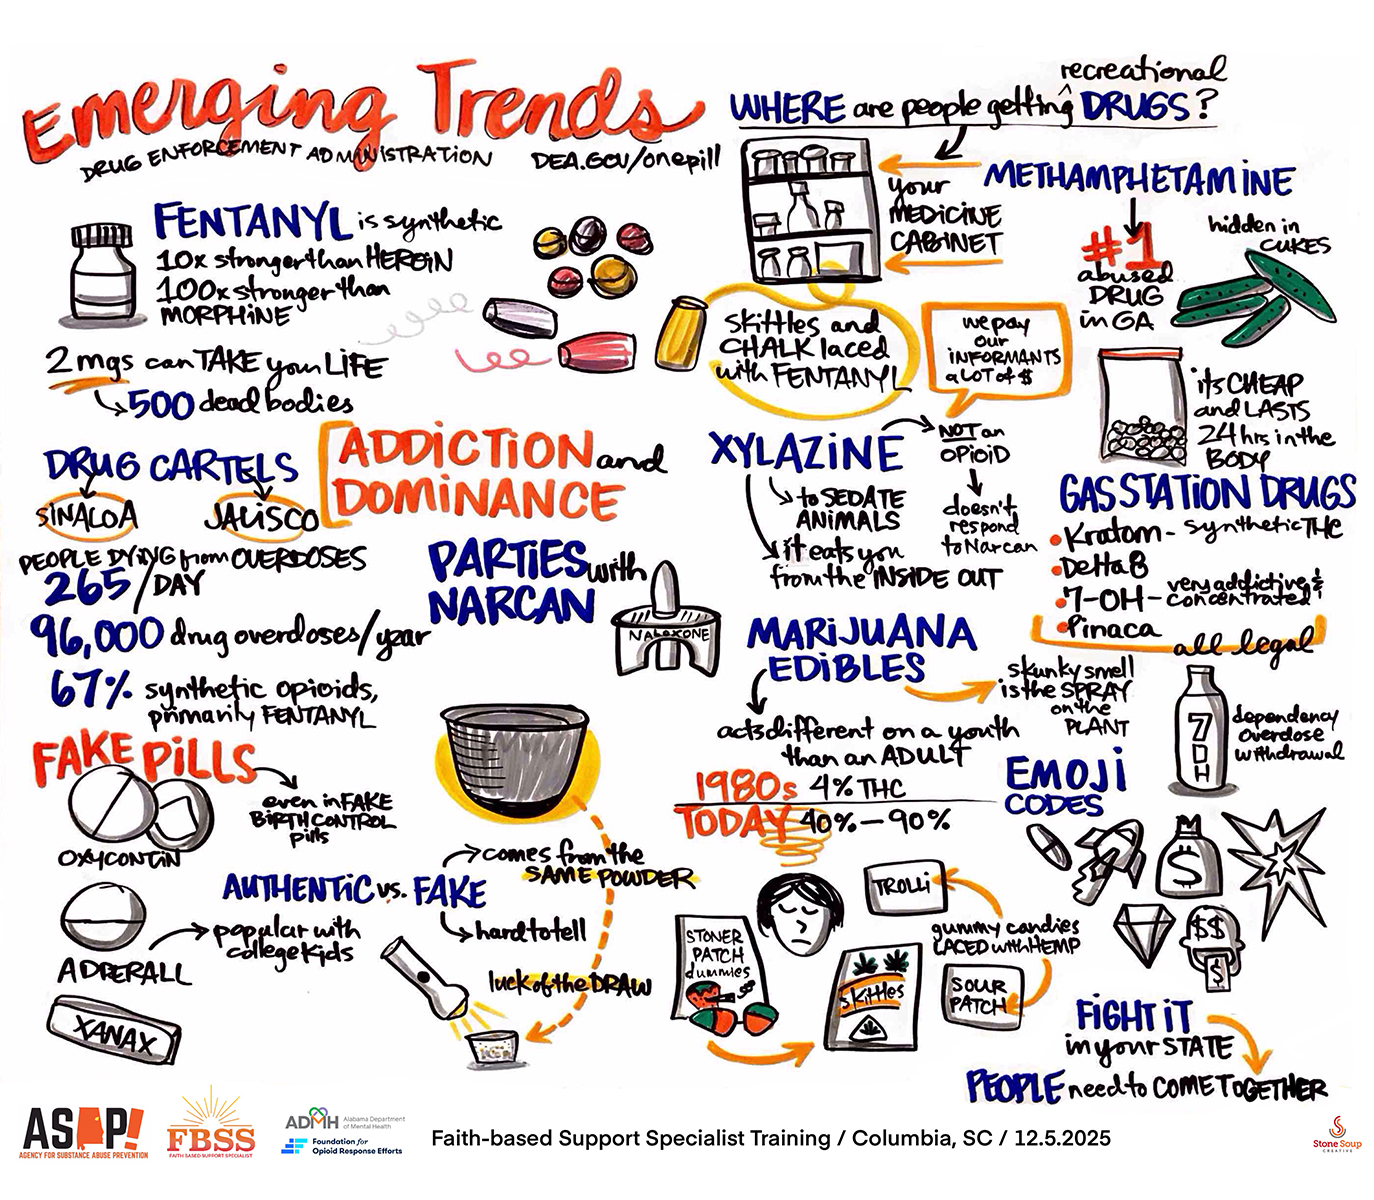 Emerging Trends
DRUG ENFORCEMENT ADMINISTRATION
DEA.GOV/onepill
FENTANYL is synthetic
10x stronger than HEROIN
100x stronger than
MORPHINE
2 mgs can TAKE your LIFE
500 dead bodies
DRUG CARTELS
SINALOA
JALISCO
ADDICTION and
DOMINANCE
PEOPLE DYING from OVERDOSES
265/DAY
96,000 drug overdoses/year
67% synthetic opioids,
primarily FENTANYL
PARTIES with
NARCAN
NALOXONE
FAKE PILLS
even in FAKE
BIRTH CONTROL
pills
OXYCONTIN
ADDERALL
XANAX
AUTHENTIC vs. FAKE
popular with
college kids
comes from the
SAME POWDER
hard to tell
luck of the DRAW
WHERE are people getting recreational DRUGS?
your
MEDICINE
CABINET
Skittles and
CHALK laced
with FENTANYL
we pay
our
INFORMANTS
a LOT of $
METHAMPHETAMINE
#1
abused
DRUG
in GA
hidden in
CUKES
it's CHEAP
and LASTS
24 hrs in the
BODY
XYLAZINE
NOT an
OPIOID
doesn't
respond
to Narcan
to SEDATE
ANIMALS
it eats you
from the INSIDE OUT
GAS STATION DRUGS
Kratom - synthetic THC
Delta 8
7-OH - very addictive &
concentrated!
Pinaca
all legal
7
O
H
dependency
overdose
withdrawal
MARIJUANA
EDIBLES
skunky smell
is the SPRAY
on the
PLANT
acts different on a youth
than an ADULT
1980s 4% THC
TODAY 40% - 90%
STONER
PATCH
dummies
Skittles
TROLLI
gummy candies
LACED with HEMP
SOUR
PATCH
EMOJI
CODES
$
$$
$
FIGHT iT
in your STATE
PEOPLE need to COME TOGETHER
ASAP!
AGENCY FOR SUBSTANCE ABUSE PREVENTION
FBSS
FAITH BASED SUPPORT SPECIALIST
ADMH Alabama Department
of Mental Health
Foundation for
Opioid Response Efforts
Faith-based Support Specialist Training / Columbia, SC / 12.5.2025
Stone Soup
CREATIVE